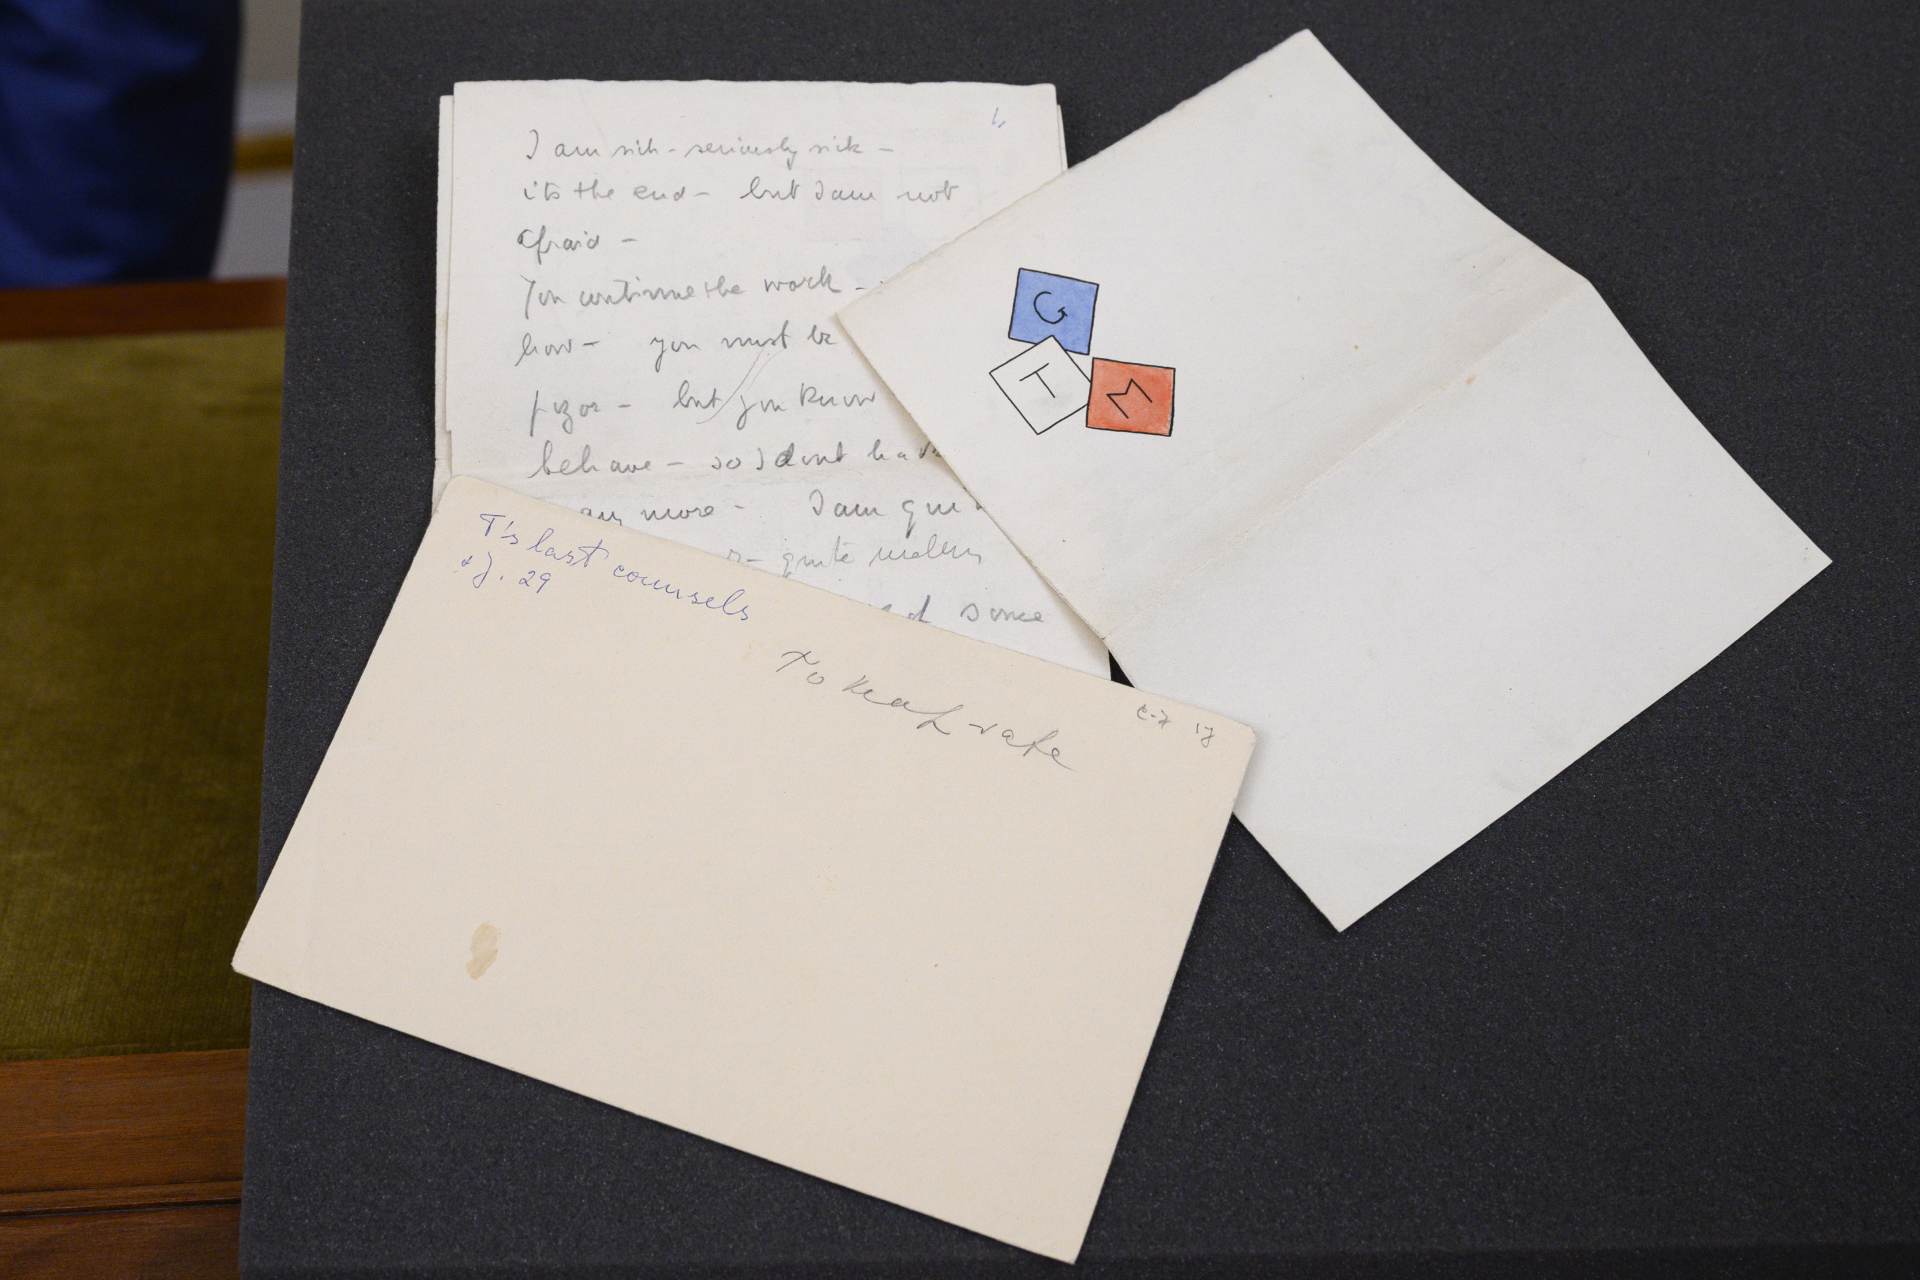 I am sick - seriously sick -
its the end - but I am not
afraid -
You continue the work -
how - you must be
but you know
behave - so I dont have
any more - I am
quite
some
G
T
M
T's last counsels
29
To keep safe